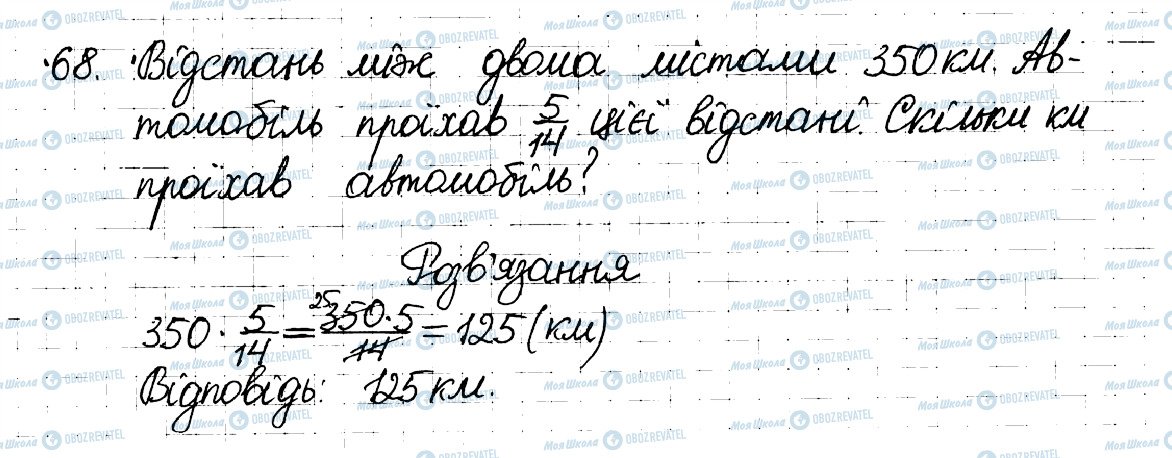 68. Відстань між двома містами 350 км. Ав-
томобіль проїхав 5/14 цієї відстані. Скільки км
проїхав автомобіль?
Розв'язання
350 · 5/14 = 350·5/14 = 125 (км)
25
Відповідь: 125 км.
МояШкола OBOZREVATEL